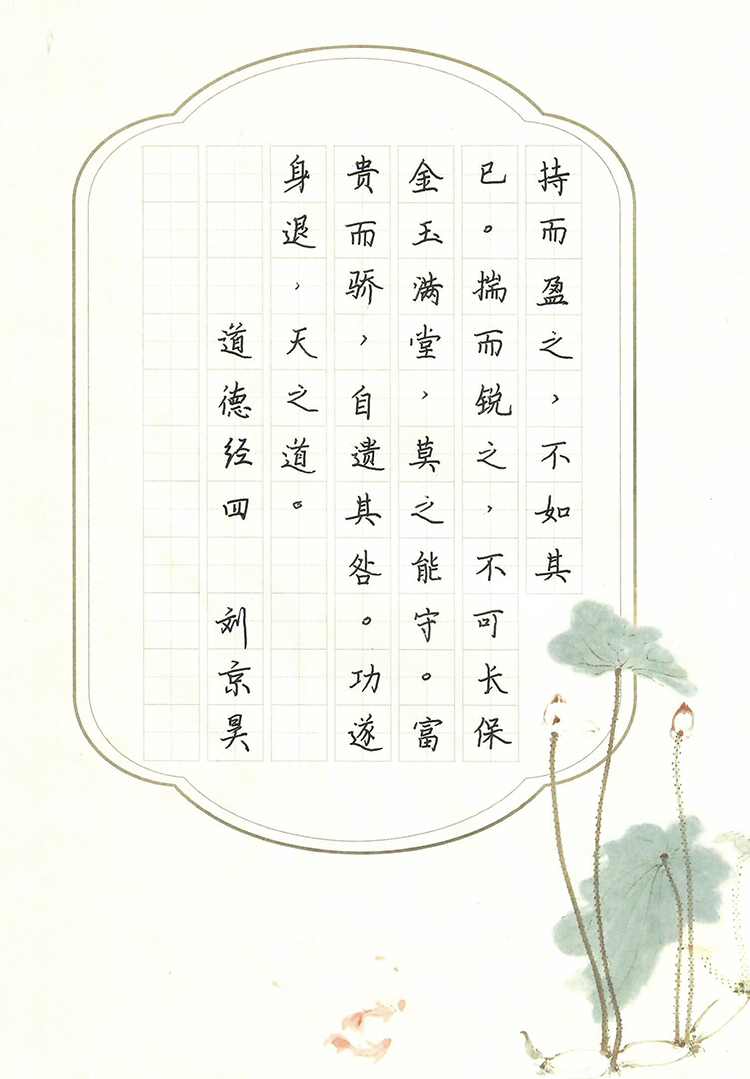 持而盈之，不如其
已。揣而锐之，不可长保
金玉满堂，莫之能守。富
贵而骄，自遗其咎。功遂
身退，天之道。
道德经四 刘京昊